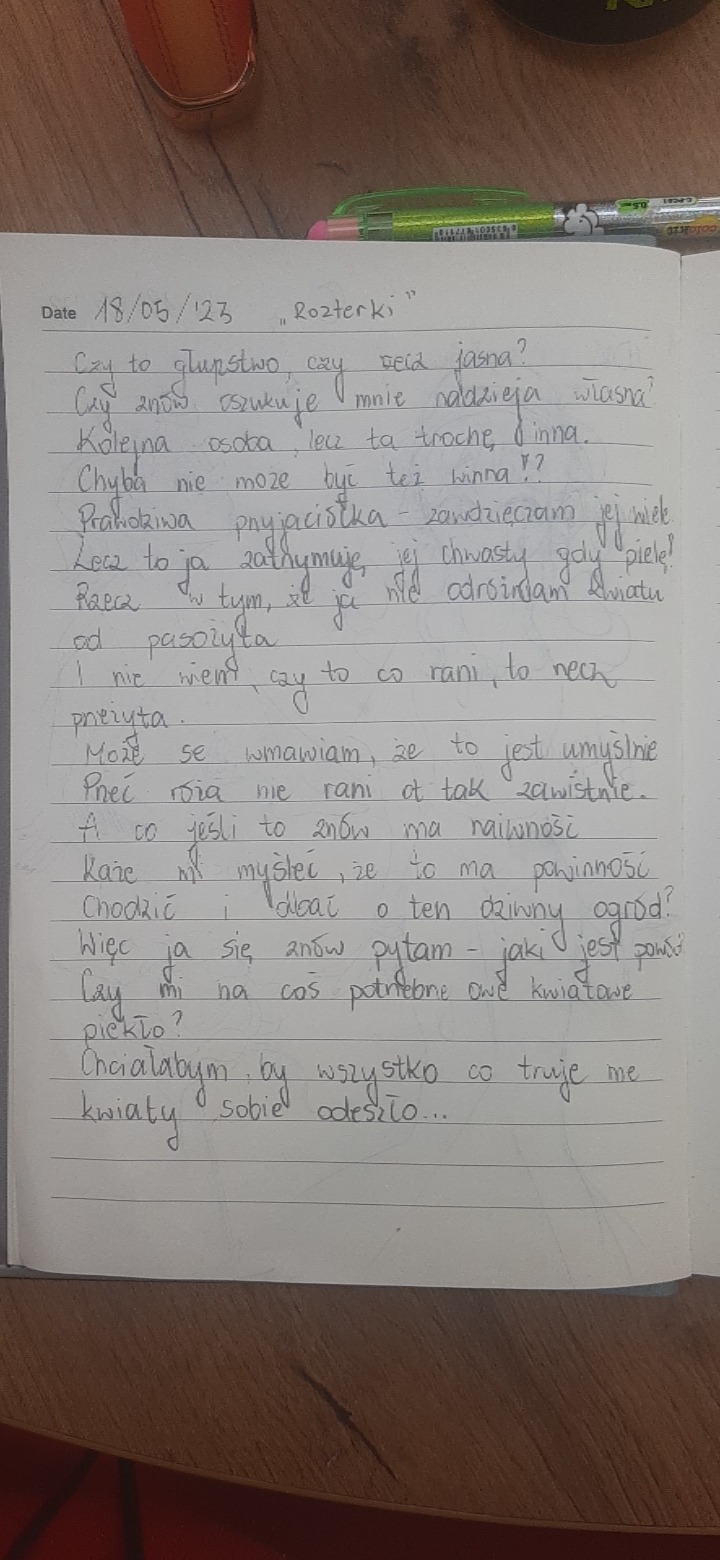 Date 18/05/'23 „Rozterki"
Czy to głupstwo, czy rzecz jasna?
Czy znów oszukuje mnie nadzieja własna?
Kolejna osoba, lecz ta trochę inna.
Chyba nie może być też winna!?
Prawdziwa przyjaciółka - zawdzięczam jej wiele
Lecz to ja zatrzymuję jej chwasty gdy pielę!
Rzecz w tym, że ja nie odróżniam kwiatu
od pasożyta
I nie wiem, czy to co rani, to niech
przeżyta.
Może se wmawiam, że to jest umyślnie
Przeć róża nie rani ot tak zawistnie.
A co jeśli to znów ma naiwność
Każe mi myśleć, że to ma powinność
Chodzić i dbać o ten dziwny ogród?
Więc ja się znów pytam - jaki jest powód
Czy mi na coś potrzebne owe kwiatowe
piekło?
Chciałabym, by wszystko co truje me
kwiaty sobie odeszło...